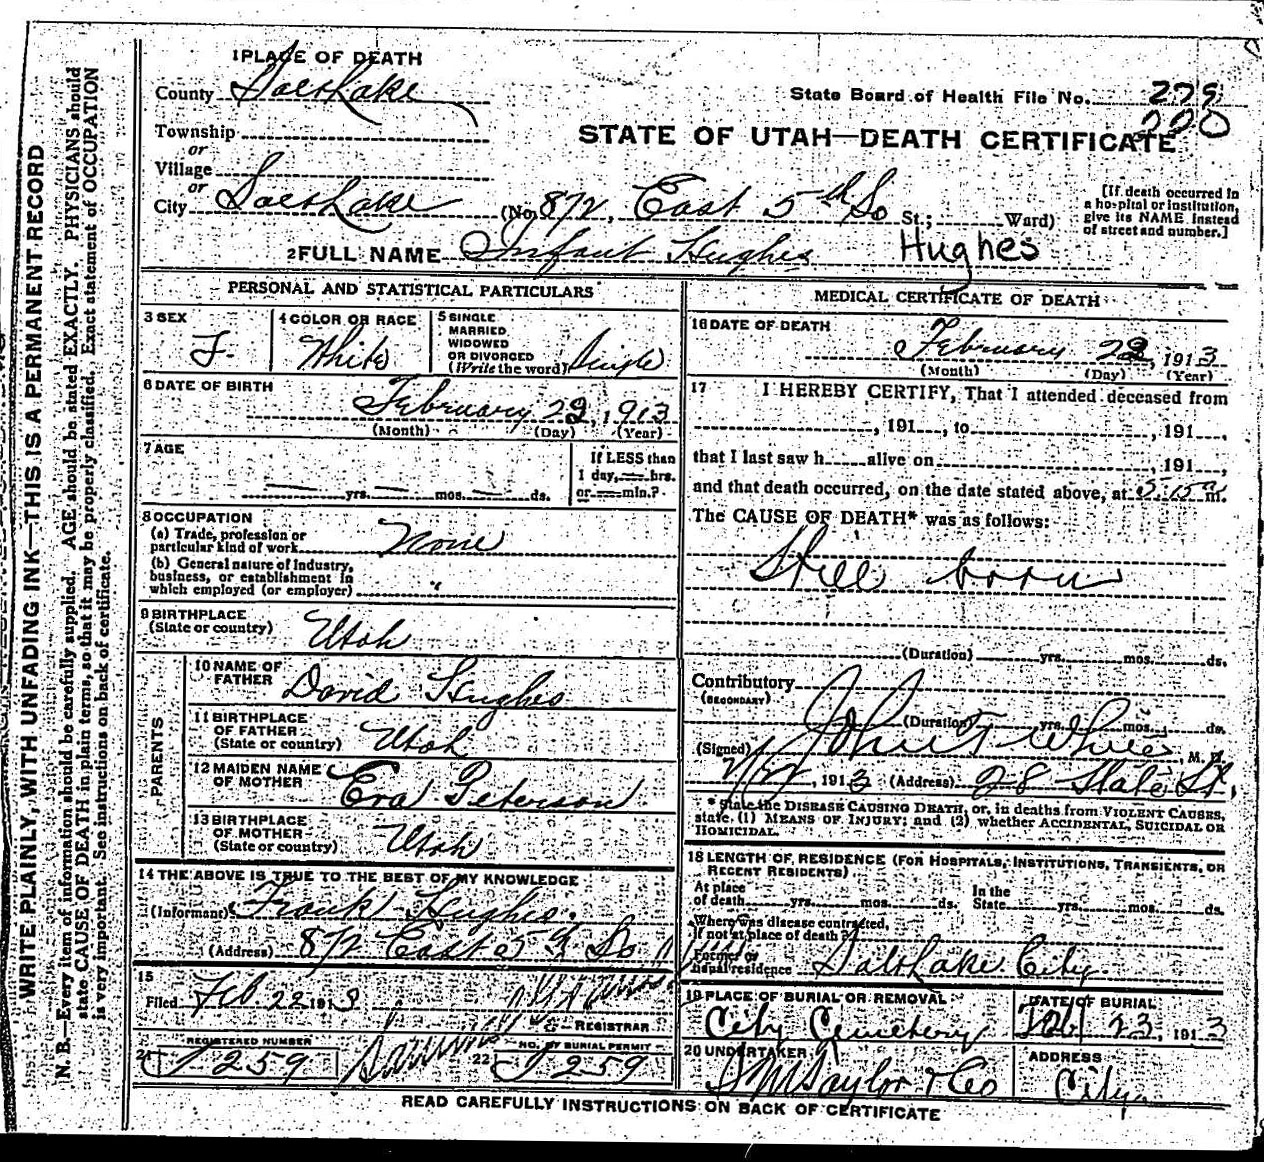 WRITE PLAINLY, WITH UNFADING INK—THIS IS A PERMANENT RECORD
N. B.—Every item of information should be carefully supplied. AGE should be stated EXACTLY. PHYSICIANS should
state CAUSE OF DEATH in plain terms, so that it may be properly classified. Exact statement of OCCUPATION
is very important. See instructions on back of certificate.
1 PLACE OF DEATH
County Salt Lake
State Board of Health File No. 279
STATE OF UTAH—DEATH CERTIFICATE
Township
or
Village
or
City Salt Lake (No. 872, East 5th So St.; Ward)
[If death occurred in
a hospital or institution,
give its NAME instead
of street and number.]
2 FULL NAME Infant Hughes Hughes
PERSONAL AND STATISTICAL PARTICULARS
3 SEX
F.
4 COLOR OR RACE
White
5 SINGLE
MARRIED,
WIDOWED
OR DIVORCED
(Write the word) Single
6 DATE OF BIRTH
February 22, 1913
(Month) (Day) (Year)
7 AGE
yrs. mos. ds.
If LESS than
1 day, hrs.
or min.?
8 OCCUPATION
(a) Trade, profession or
particular kind of work None
(b) General nature of industry,
business, or establishment in
which employed (or employer) "
9 BIRTHPLACE
(State or country) Utah
PARENTS
10 NAME OF
FATHER David Hughes
11 BIRTHPLACE
OF FATHER
(State or country) Utah
12 MAIDEN NAME
OF MOTHER Eva Peterson
13 BIRTHPLACE
OF MOTHER
(State or country) Utah
14 THE ABOVE IS TRUE TO THE BEST OF MY KNOWLEDGE
(Informant) Frank Hughes.
(Address) 872 East 5th So
15
Filed Feb. 22 1913
REGISTRAR
REGISTERED NUMBER
21 259
22 NO. OF BURIAL PERMIT
259
MEDICAL CERTIFICATE OF DEATH
16 DATE OF DEATH
February 22, 1913
(Month) (Day) (Year)
17 I HEREBY CERTIFY, That I attended deceased from
, 191 , to , 191 ,
that I last saw h alive on , 191 ,
and that death occurred, on the date stated above, at 5:15 a m.
The CAUSE OF DEATH* was as follows:
Still born
(Duration) yrs. mos. ds.
Contributory
(SECONDARY)
(Duration) yrs. mos. ds.
(Signed) John T White, M. D.
2/22, 1913 (Address) 28 State St.
* State the DISEASE CAUSING DEATH, or, in deaths from VIOLENT CAUSES,
state, (1) MEANS OF INJURY; and (2) whether ACCIDENTAL, SUICIDAL OR
HOMICIDAL.
18 LENGTH OF RESIDENCE (FOR HOSPITALS, INSTITUTIONS, TRANSIENTS, OR
RECENT RESIDENTS)
At place
of death yrs. mos. ds.
In the
State yrs. mos. ds.
Where was disease contracted,
if not at place of death?
Former or
usual residence Salt Lake City
19 PLACE OF BURIAL OR REMOVAL
City Cemetery
DATE OF BURIAL
Feb 23, 1913
20 UNDERTAKER
S M Taylor & Co
ADDRESS
City
READ CAREFULLY INSTRUCTIONS ON BACK OF CERTIFICATE